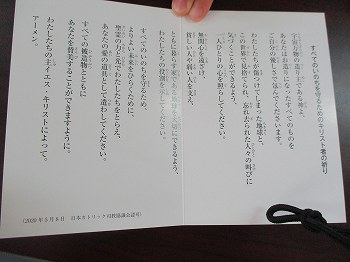 すべてのいのちを守るためのキリスト者の祈り
宇宙万物の造り主である神よ、
あなたはお造りになったすべてのものを
ご自分の優しさで包んでくださいます。
わたしたちが傷つけてしまった地球と、
この世界で見捨てられ、忘れ去られた人々の叫びに
気づくことができるよう、
一人ひとりの心を照らしてください。
無関心を遠ざけ、
貧しい人や弱い人を支え、
ともに暮らす家である地球を大切にできるよう、
わたしたちの役割を示してください。
すべてのいのちを守るため、
よりよい未来をひらくために、
聖霊の力と光でわたしたちをとらえ、
あなたの愛の道具として遣わしてください。
すべての被造物とともに
あなたを賛美することができますように。
わたしたちの主イエス・キリストによって。
アーメン。
(2020年5月8日 日本カトリック司教協議会認可)